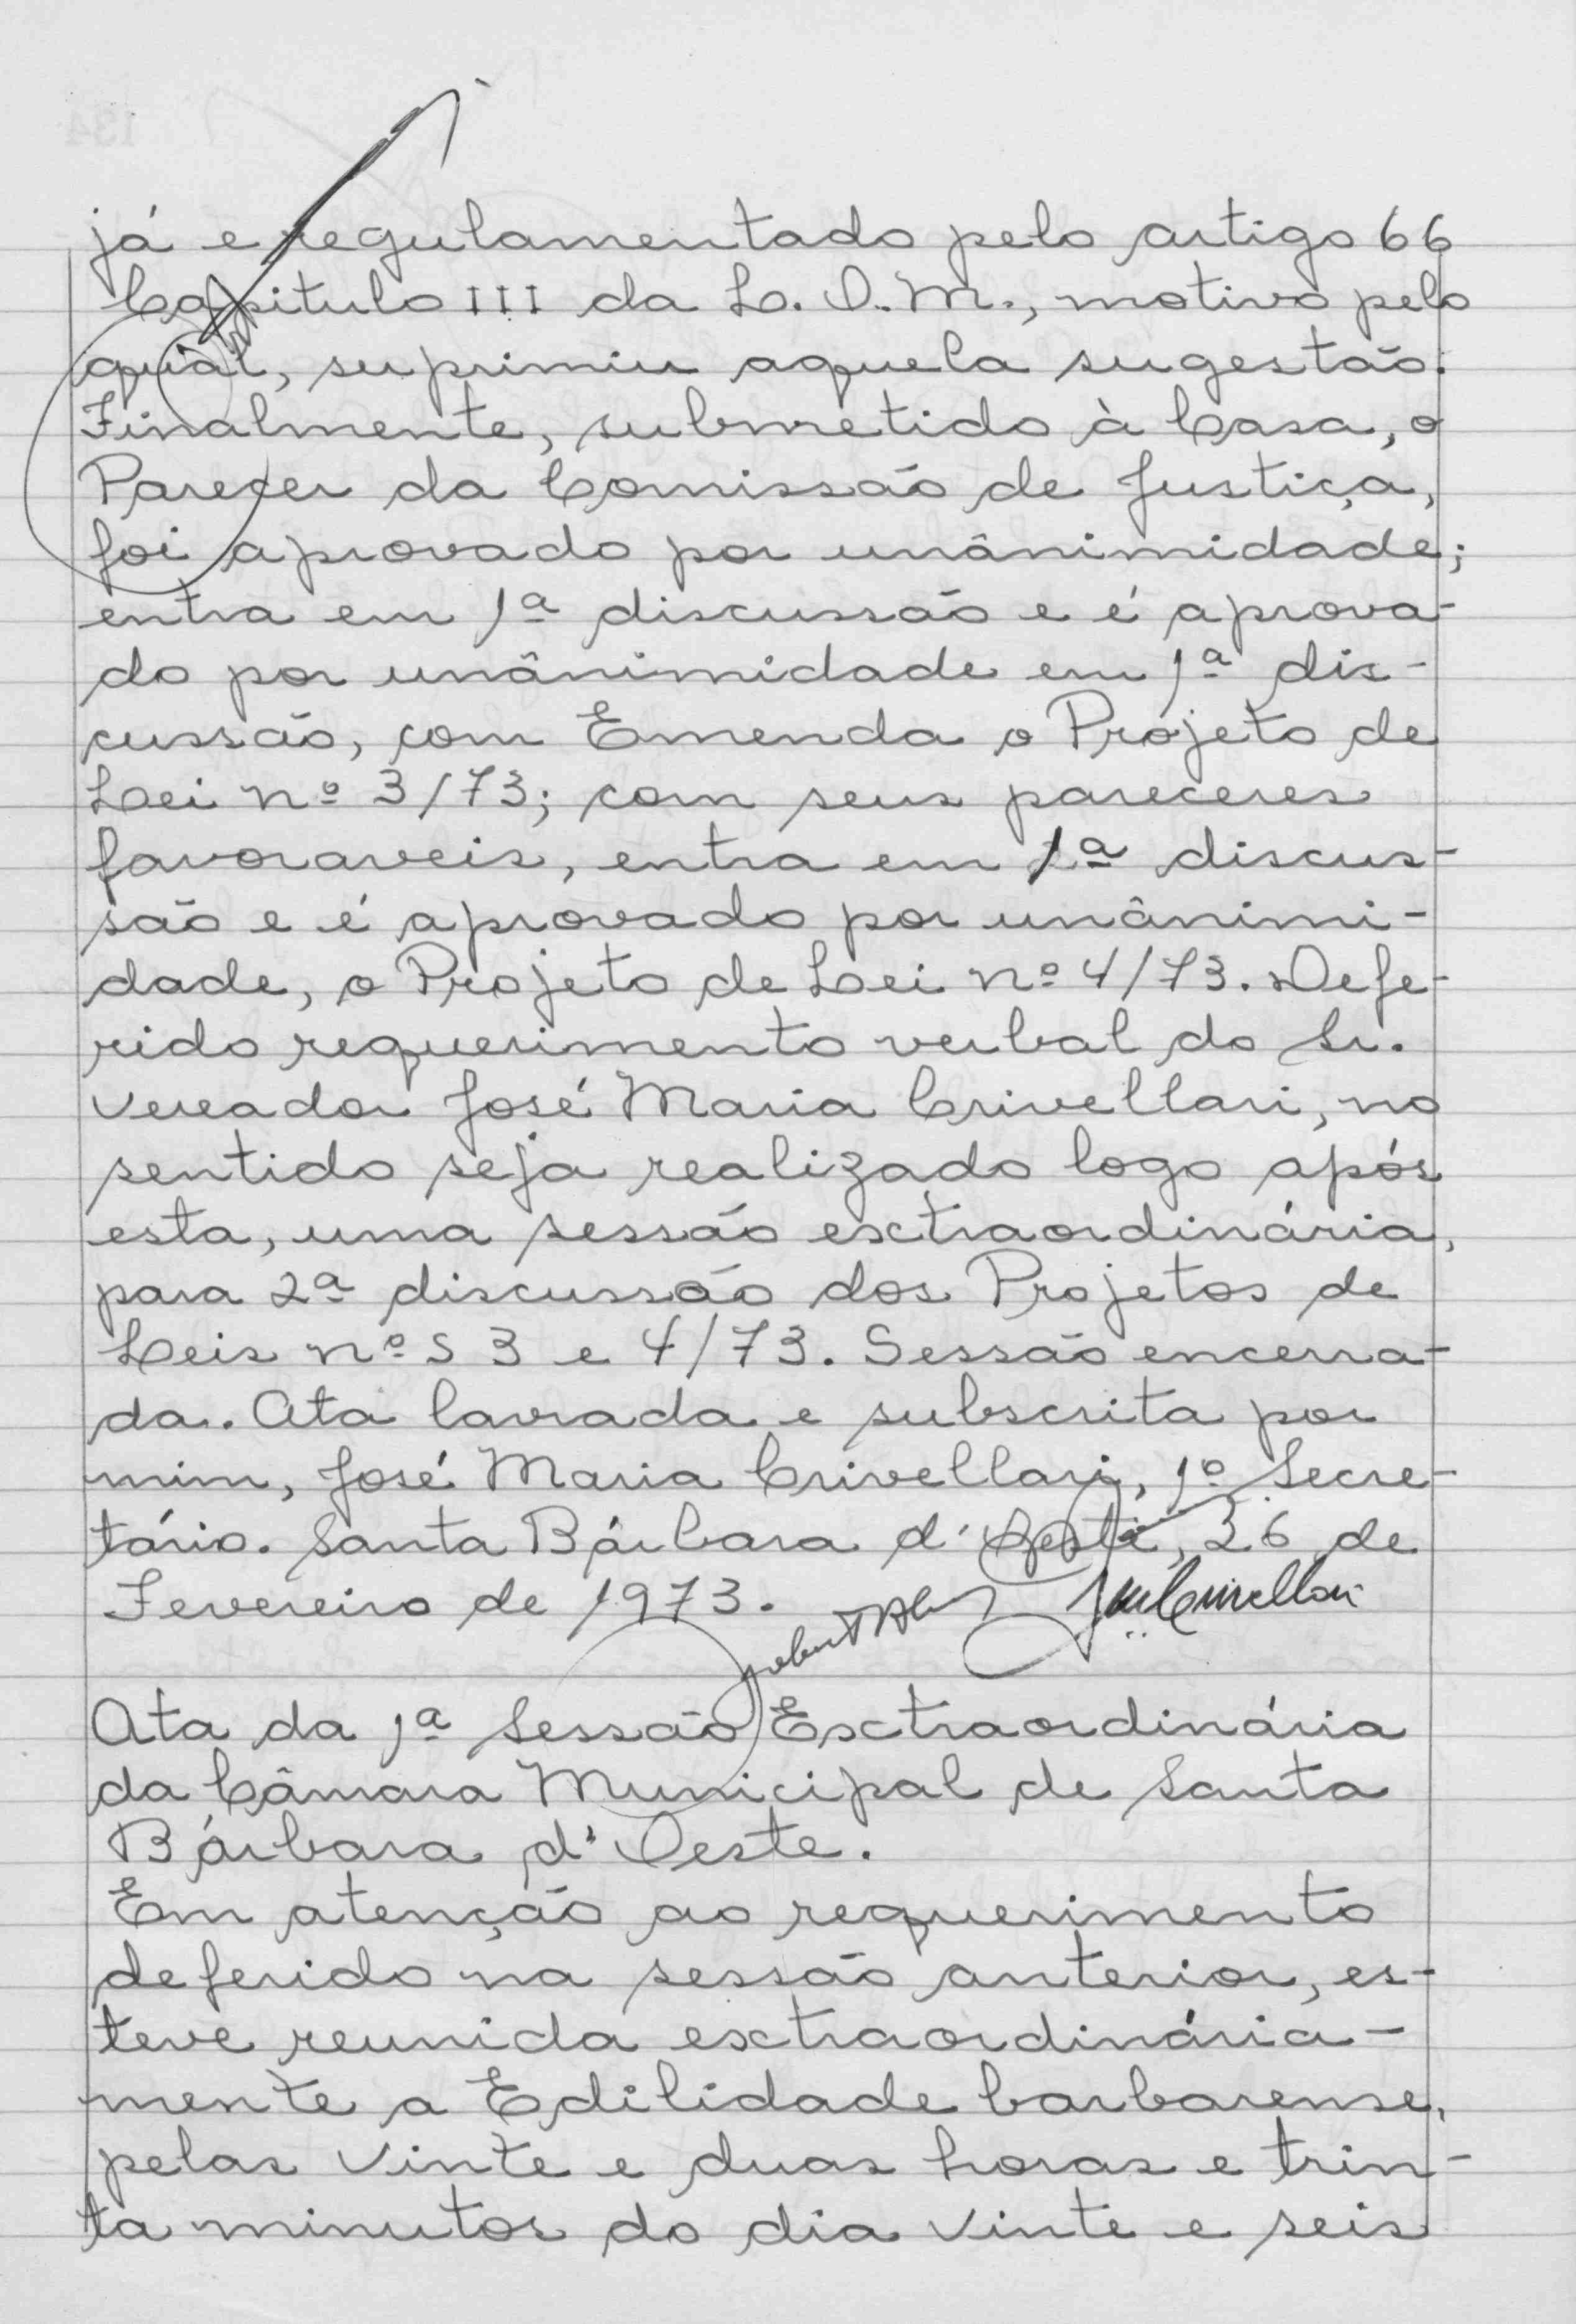 já e regulamentado pelo artigo 66
Capitulo III da L. O. M., motivo pelo
qual, suprimiu aquela sugestão.
Finalmente, submetido à Casa, o
Parecer da Comissão de Justiça,
foi aprovado por unânimidade;
entra em 1ª discussão e é aprova-
do por unânimidade em 1ª dis-
cussão, com Emenda o Projeto de
Lei nº 3/73; com seus pareceres
favoraveis, entra em 1ª discus-
são e é aprovado por unânimi-
dade, o Projeto de Lei nº 4/73. Defe-
rido requerimento verbal do Sr.
Vereador José Maria Crivellari, no
sentido seja realizado logo após
esta, uma sessão extraordinária,
para 2ª discussão dos Projetos de
Leis nºs 3 e 4/73. Sessão encerra-
da. Ata lavrada e subscrita por
mim, José Maria Crivellari, 1º Secre-
tário. Santa Bárbara d'Oeste, 26 de
Fevereiro de 1973.
Ata da 1ª Sessão Extraordinária
da Câmara Municipal de Santa
Bárbara d'Oeste.
Em atenção ao requerimento
deferido na sessão anterior, es-
teve reunida extraordinária-
mente a Edilidade barbarense,
pelas vinte e duas horas e trin-
ta minutos do dia vinte e seis